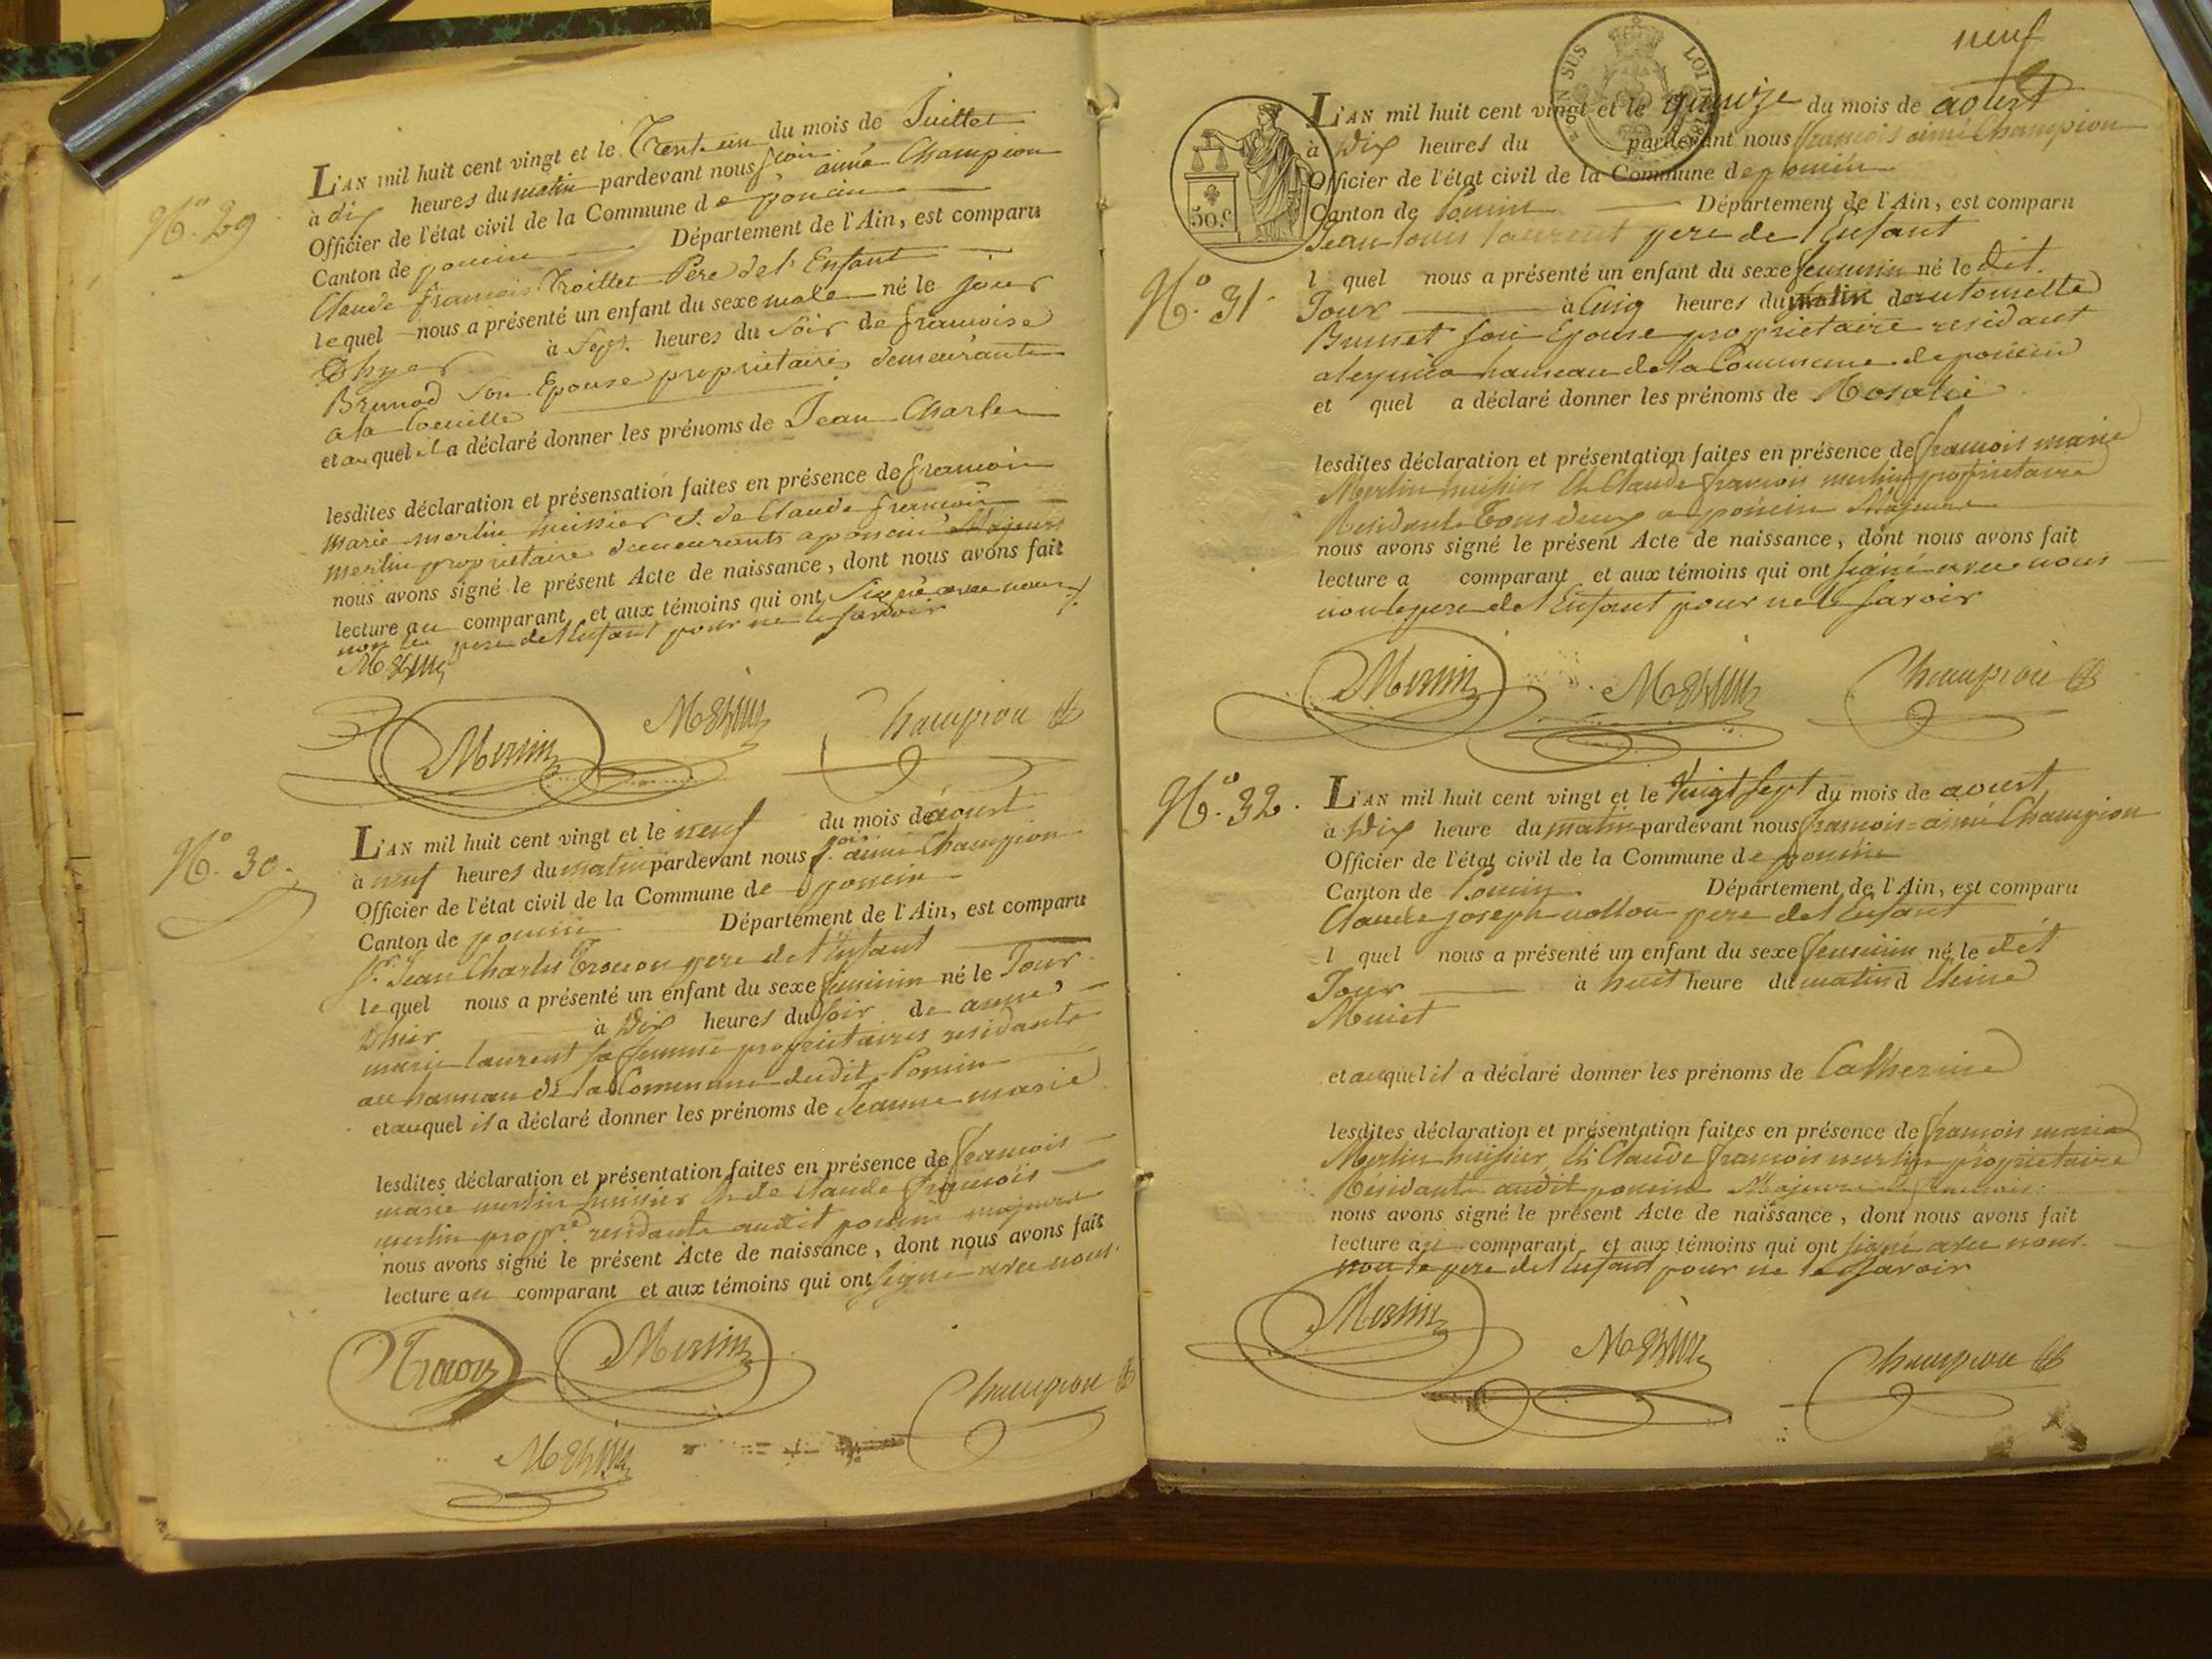 N.º 29
L'AN mil huit cent vingt et le Trent-un du mois de Juillet
à dix heures du matin pardevant nous fcois aimé Champion
Officier de l'état civil de la Commune de poncin
Canton de poncin Département de l'Ain, est comparu
Claude francois Troillet Pere de l'Enfant
lequel nous a présenté un enfant du sexe male né le jour
Dhyer à Sept heures du Soir de francoise
Brunod Son Epouse proprietaires demeurants
a la
et au quel il a déclaré donner les prénoms de Jean Charles
lesdites déclaration et présensation faites en présence de francois
marie merlin huissier & de Claude francois
merlin proprietaire demeurants a poncin Majeurs
nous avons signé le présent Acte de naissance, dont nous avons fait
lecture au comparant et aux témoins qui ont Signé avec nous
non le pere de l'Enfant pour ne le savoir
Merlin
Merlin Merlin Champion
N.º 30.
L'AN mil huit cent vingt et le neuf du mois de aoust
à neuf heures du matin pardevant nous f.cois aimé Champion
Officier de l'état civil de la Commune de poncin
Canton de poncin Département de l'Ain, est comparu
Sr. Jean Charles pere de l'Enfant
lequel nous a présenté un enfant du sexe feminin né le Jour
Dhier à Dix heures du soir de anne
marie laurent sa femme proprietaires residants
au hameau de la Commune dudit Poncin
et auquel il a déclaré donner les prénoms de Jeanne marie
lesdites déclaration et présentation faites en présence de francois
marie merlin huissier & de Claude francois
merlin propre residants audit poncin majeurs
nous avons signé le présent Acte de naissance, dont nous avons fait
lecture au comparant et aux témoins qui ont signé avec nous.
Merlin
Champion
Merlin
neuf
EN SUS LOI
50.c
N.º 31.
L'AN mil huit cent vingt et le quinze du mois de aoust
à Dix heures du pardevant nous francois aimé Champion
Officier de l'état civil de la Commune de poncin
Canton de Poncin Département de l'Ain, est comparu
Jean louis laurent pere de l'Enfant
l quel nous a présenté un enfant du sexe feminin né le dit
Jour à Cinq heures du matin de antoinette
Brunet son Epouse proprietaire residant
hameau de la Commune de poncin
et quel a déclaré donner les prénoms de Rosalie
lesdites déclaration et présentation faites en présence de francois marie
Merlin huissier & Claude francois merlin proprietaire
Residants Tous deux a poncin Majeurs
nous avons signé le présent Acte de naissance, dont nous avons fait
lecture a comparant et aux témoins qui ont signé avec nous
non le pere de l'Enfant pour ne le savoir
Merlin Merlin Champion
N.º 32.
L'AN mil huit cent vingt et le Vingt Sept du mois de aoust
à Dix heure du matin pardevant nous francois aimé Champion
Officier de l'état civil de la Commune de poncin
Canton de Poncin Département de l'Ain, est comparu
Claude joseph pere de l'Enfant
l quel nous a présenté un enfant du sexe feminin né le dit
Jour à huit heure du matin d
et auquel il a déclaré donner les prénoms de Catherine
lesdites déclaration et présentation faites en présence de francois marie
Merlin huissier & Claude francois merlin proprietaire
Residants audit poncin Majeurs
nous avons signé le présent Acte de naissance, dont nous avons fait
lecture au comparant et aux témoins qui ont signé avec nous.
non le pere de l'Enfant pour ne le savoir
Merlin Merlin Champion